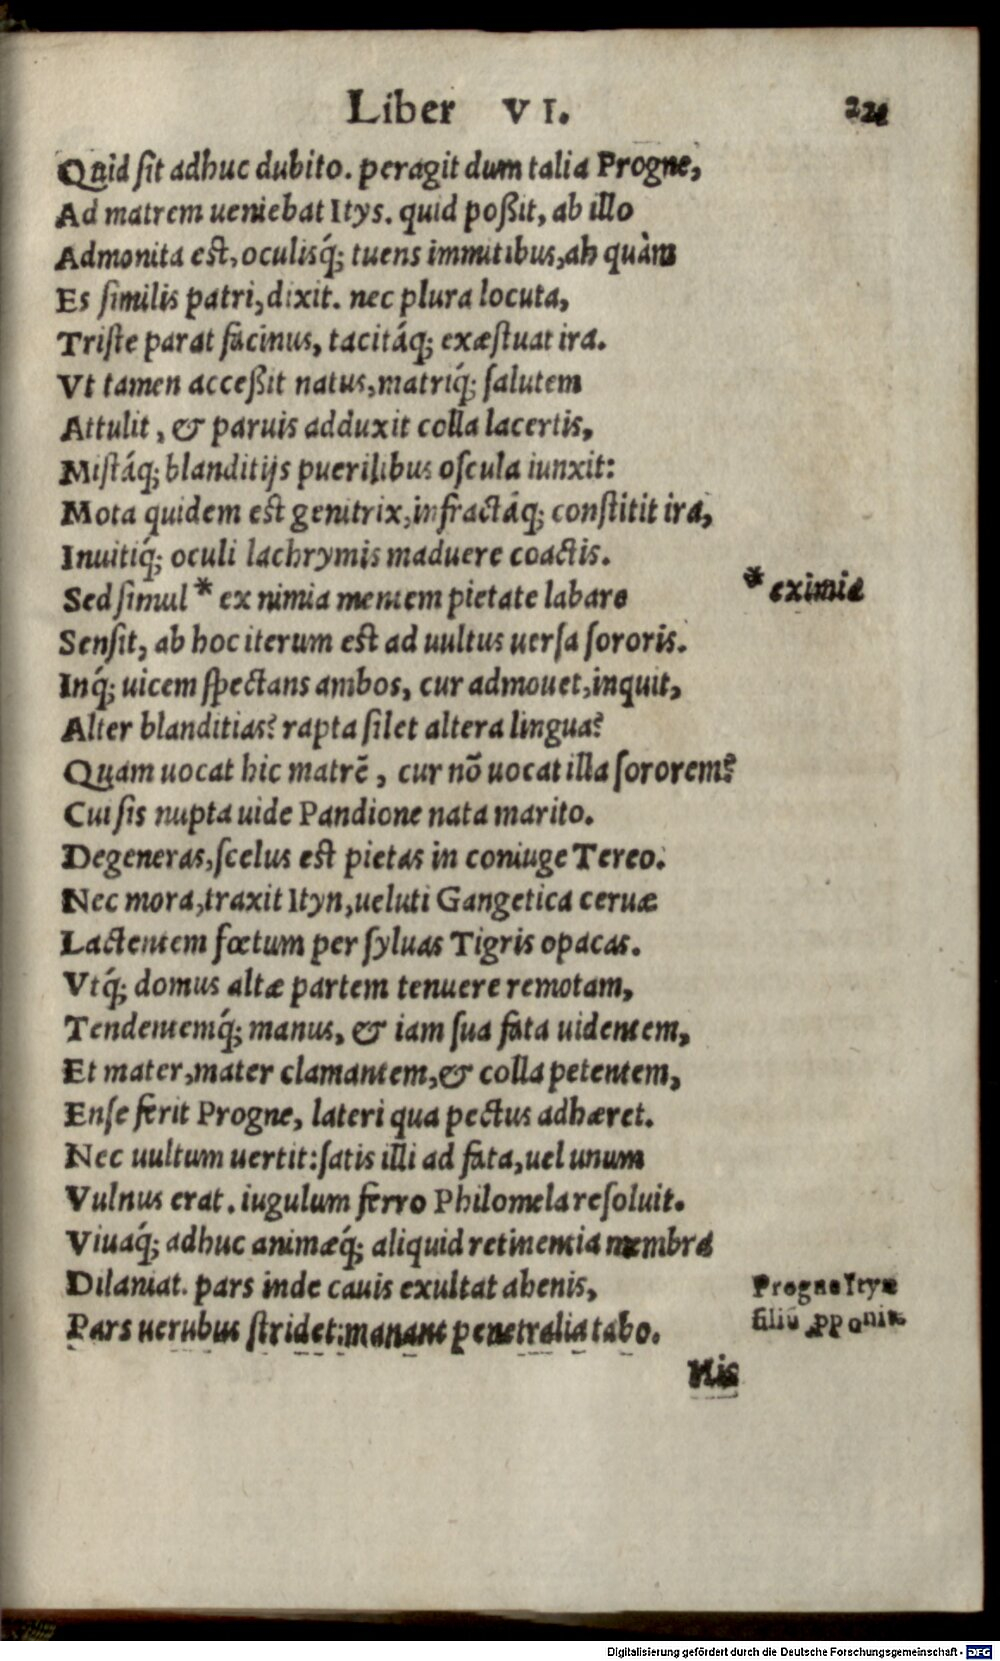 Liber VI.
Quid ſit adhuc dubito. peragit dum talia Progne,
Ad matrem ueniebat Itys. quid poßit, ab illo
Admonita est, oculisq́; tuens immitibus, ah quàm
Es ſimilis patri, dixit. nec plura locuta,
Triſte parat facinus, tacitáq; exæſtuat ira.
Vt tamen acceßit natus, matriq́; ſalutem
Attulit, & paruis adduxit colla lacertis,
Miſtáq; blanditijs puerilibus oſcula iunxit:
Mota quidem est genitrix, infractáq; conſtitit ira,
Inuitiq́; oculi lachrymis maduere coactis.
Sed ſimul * ex nimia mentem pietate labare
* eximia
Senſit, ab hoc iterum est ad uultus uerſa ſororis.
Inq́; uicem ſpectans ambos, cur admouet, inquit,
Alter blanditias? rapta ſilet altera lingua?
Quam uocat hic matrē, cur nō uocat illa ſororem?
Cui ſis nupta uide Pandione nata marito.
Degeneras, ſcelus est pietas in coniuge Tereo.
Nec mora, traxit Ityn, ueluti Gangetica ceruæ
Lactentem fœtum per ſyluas Tigris opacas.
Vtq́; domus altæ partem tenuere remotam,
Tendentemq́; manus, & iam ſua fata uidentem,
Et mater, mater clamantem, & colla petentem,
Enſe ferit Progne, lateri qua pectus adhæret.
Nec uultum uertit: ſatis illi ad fata, uel unum
Vulnus erat. iugulum ferro Philomela reſoluit.
Viuaq́; adhuc animæq́; aliquid retinentia membra
Dilaniat. pars inde cauis exultat ahenis,
Progne Ityn
Pars uerubus ſtridet: manant penetralia tabo.
filiū apponit
His
Digitalisierung gefördert durch die Deutsche Forschungsgemeinschaft - DFG